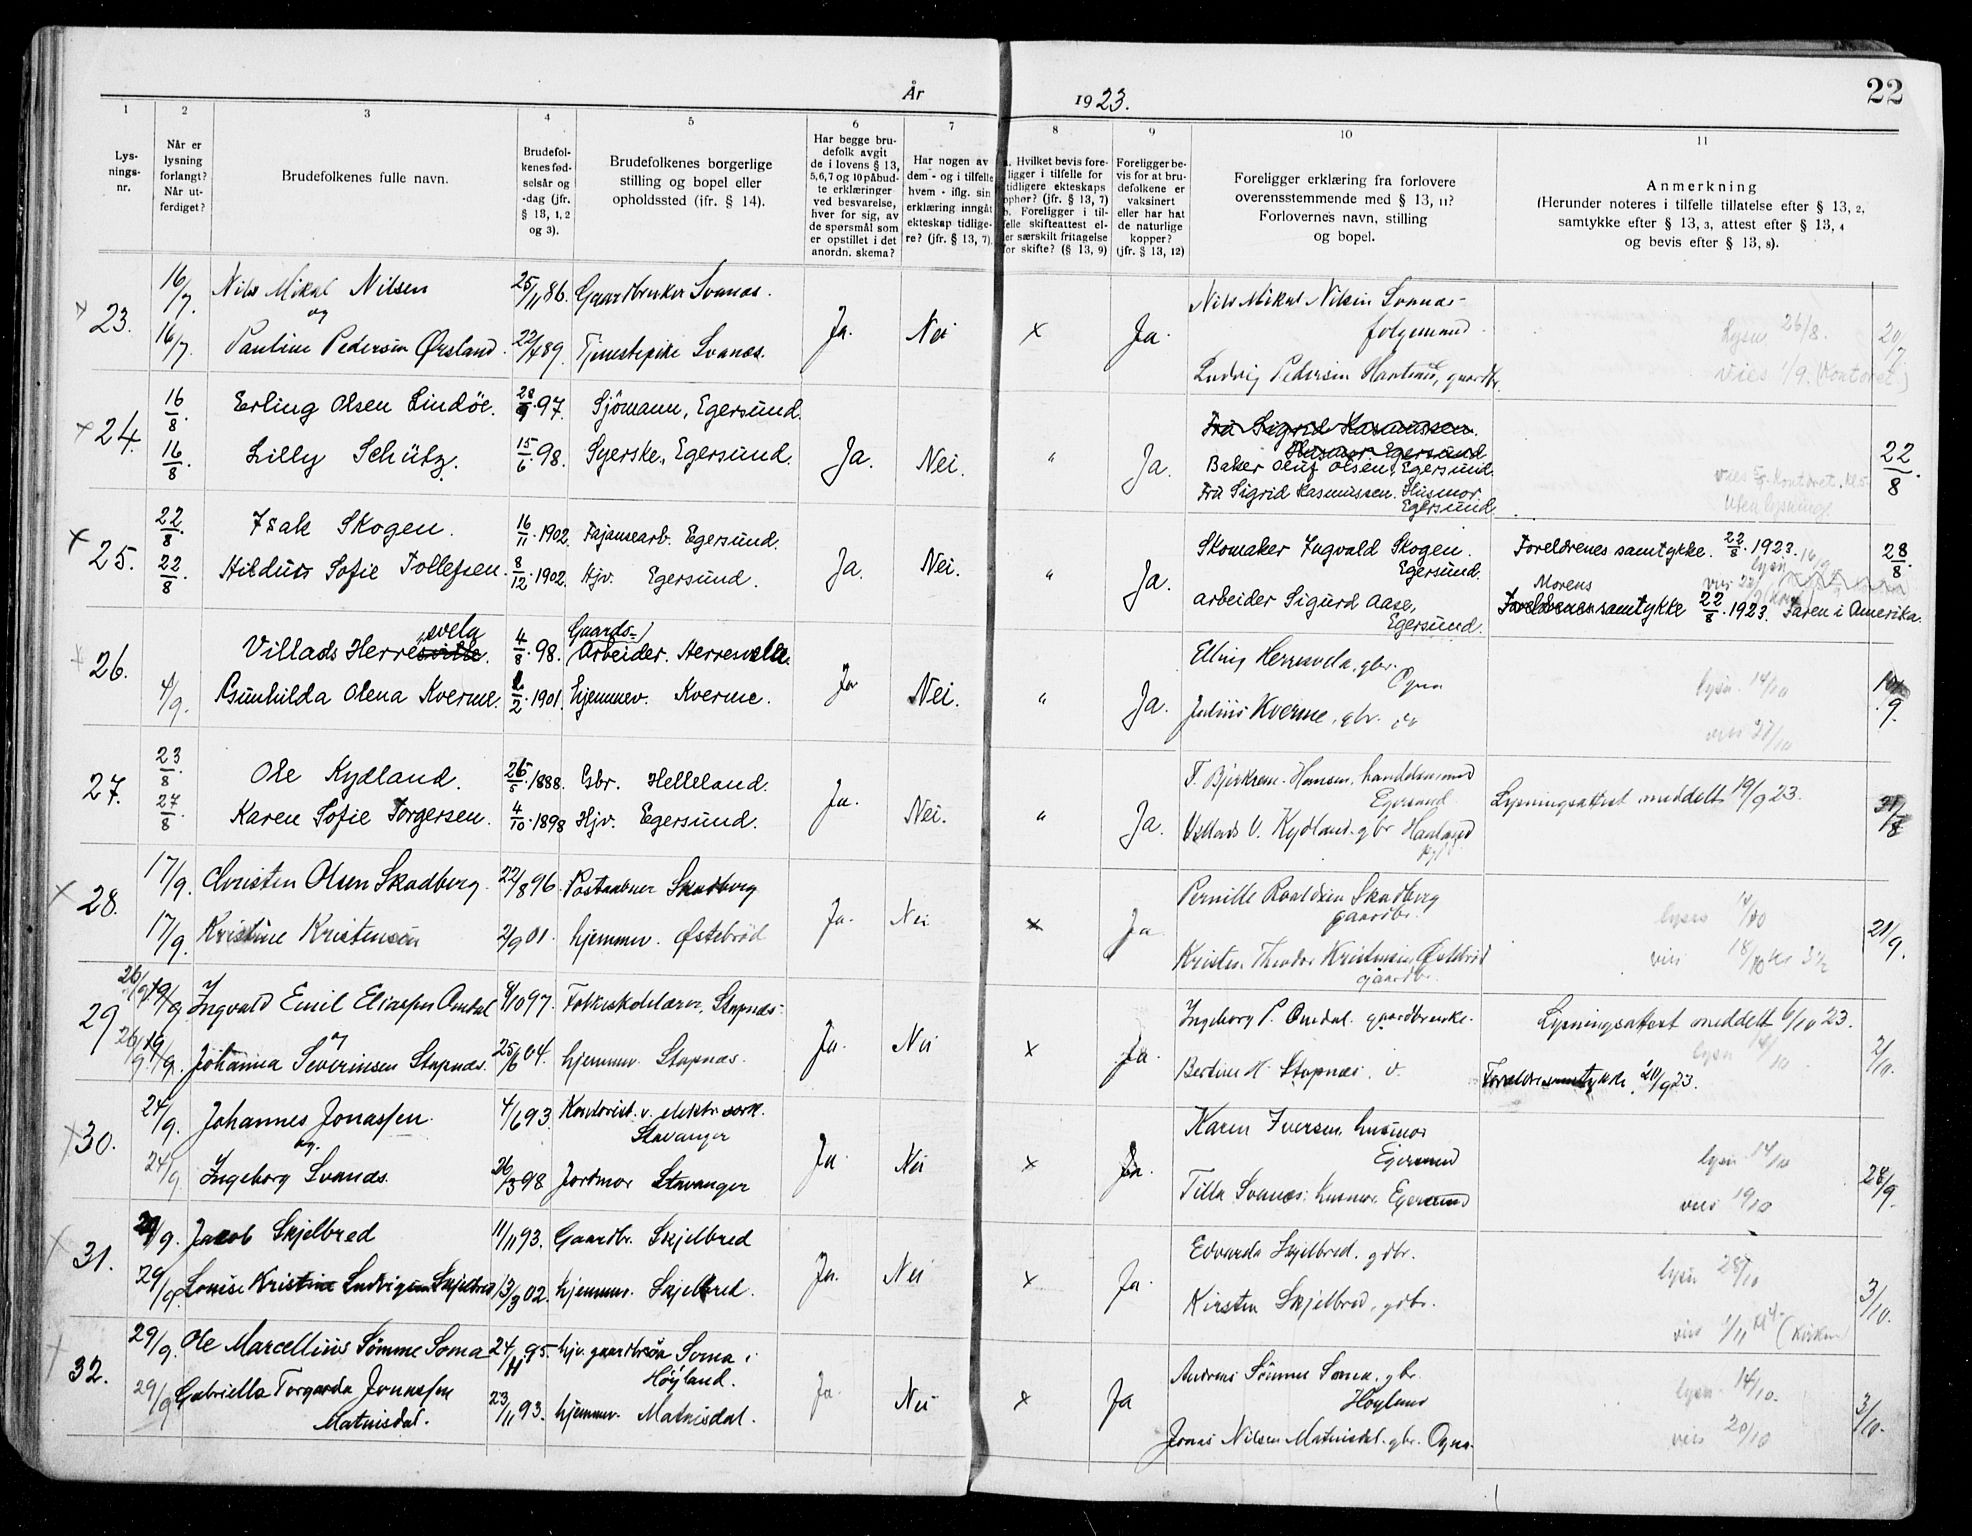 År 1923.
22
1
2
3
4
5
6
7
8
9
10
11
Lys-
nings-
nr.
Når er
lysning
forlangt?
Når ut-
ferdiget?
Brudefolkenes fulle navn.
Brudefol-
kenes fød-
selsår og
-dag (jfr.
§ 13, 1, 2
og 3).
Brudefolkenes borgerlige
stilling og bopel eller
opholdssted (jfr. § 14).
Har begge bru-
defolk avgit
de i lovens § 13,
5, 6, 7 og 10 påbud-
te erklæringer
ved besvarelse,
hver for sig, av
de spørsmål som
er opstillet i det
anordn. skema?
Har nogen av
dem - og i tilfelle
hvem - iflg. sin
erklæring inngåt
ekteskap tidlige-
re? (jfr. § 13, 7).
Hvilket bevis fore-
ligger i tilfelle for
tidligere ekteskaps
ophør? (jfr. § 13, 7)
b. Foreligger i til-
felle skifteattest el-
ler særskilt fritagelse
for skifte? (§ 13, 9)
Foreligger be-
vis for at bru-
defolkene er
vaksinert
eller har hat
de naturlige
kopper?
(jfr. § 13, 12)
Foreligger erklæring fra forlovere
overensstemmende med § 13, 11?
Forlovernes navn, stilling
og bopel.
Anmerkning
(Herunder noteres i tilfelle tillatelse efter § 13, 2,
samtykke efter § 13, 3, attest efter § 13, 4
og bevis efter § 13, 8).
x 23. 16/7. Nils Mikal Nilsen 25/11 86. Gaardbruker Svanæs. Ja. Nei x Ja. Nils Mikal Nilsen Svanæs
og
16/7. Pauline Pedersen Ørsland. 22/7 89. Tjenestepike Svanæs. Lysn 26/8. 20/7
Ludvig Pedersen gaardbr. vies 1/9. (Kontoret.)
x 24. 16/8 Erling Olsen Lindöe. 28/9 97. Sjömann, Egersund. Ja. Nei. " Ja. Fru Sigrid Rasmussen.
Husmor. Egersund
16/8 Lilly Schütz. 15/6 98. Syerske, Egersund. Baker Oluf Olsen, Egersund. 22/8.
Fru Sigrid Rasmussen. Husmor. Egersund
x 25. 22/8. Isak Skogen. 16/11. 1902. Fajansearb. Egersund. Ja. Nei. " Ja. Skomaker Ingvald Skogen. Egersund. Foreldrenes samtykke. 22/8. 1923. 28/8.
22/8. Sofie Tollefsen. 8/12. 1902. Hjv. Egersund. arbeider Sigurd Aase, Egersund. Morens
Foreldrenes samtykke 22/8. 1923. Faren i Amerika.
x 26. Villads Herresvela. 4/8. 98. Gaards-
Arbeider. Herresvela. Ja Nei. " Ja. Elling Herresvela, gbr. Ogna lysn. 14/10
4/9. Gunhilda Olena Kverme. 2. 1901. hjemmev. Kverme. Julius Kverme, gbr. do vies 27/10
27. 23/8. Ole Kydland. 26. 1888. Gbr. Helleland. Ja. Nei. " Ja. T. Bjerkrem-Hansen, handelsmand Egersund Lysningsattest meddelt 19/9 23.
27/8. Karen Sofie Torgersen. 4/10. 1898 Hjv. Egersund. Villads V. Kydland. gbr.
x 28. 17/9. Christen Olsen Skadberg. 22/8 96. Postaabner Skadberg Ja. Nei x Ja Pernille Roaldsen Skadberg gaardbr. lysn 21/9.
17/9. Kristine Kristensen 2/9 01. hjemmev. Østebrød Kristen Theodor Kristensen Østebrød gaardbr. vies 18/10
29 26/9 19/9 Ingvald Emil Eliassen Omdal 97. Folkeskolelærer, Stapnæs Ja. Nei x Ja. Ingeborg P. Omdal. gaardbruke. Lysningsattest meddelt 6/10 23. 2/10.
26/9. 19/9. Johanna Severinsen Stapnæs. 25/6 04. hjemmev. Stapnæs. Berdine H. Stapnæs. Foreldresamtykke. 20/9 23.
x 30. 24/9. Johannes Jonassen. 4/6 93. Kontorist. v. elektr. verk. Stavanger Ja. Nei x Ja. Karen Iversen, husmor Egersund lysn 14/10
og.
24/9 Ingeborg Svanæs. 26/3 98 Jordmor Stavanger Tilla Svanæs. husmor, Egersund vies 19/10 28/9.
x 31. 9. Jacob Skjelbred 11/11 93. Gaardbr. Skjelbred Ja. Nei x Ja. Edvarda Skjelbred. gdbr. lysn 28/10
29/9. Louise Kristine Ludvigsen Skjelbred 13/3 02. hjemmev. Skjelbred. Kirsten Skjelbred, gdbr. vies 1/11 (Kirken) 3/10.
x 32. 29/9. Ole Marcellius Sømme Soma 24/11 95. hjv. gaardbrsøn Soma i Høyland. Ja. Nei x Ja Andreas Sømme Soma. gbr. Høyland lysn. 14/10.
29/9 Gabriella Torgarda Jonassen Matnisdal. 23/11 93. hjemmev. Matnisdal. Jonas Nilsen Matnisdal. gbr. Ogna. vies 20/10 3/10.